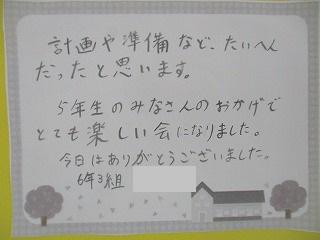 計画や準備など、たいへん
だったと思います。
5年生のみなさんのおかげで
とても楽しい会になりました。
今日はありがとうございました。
6年3組